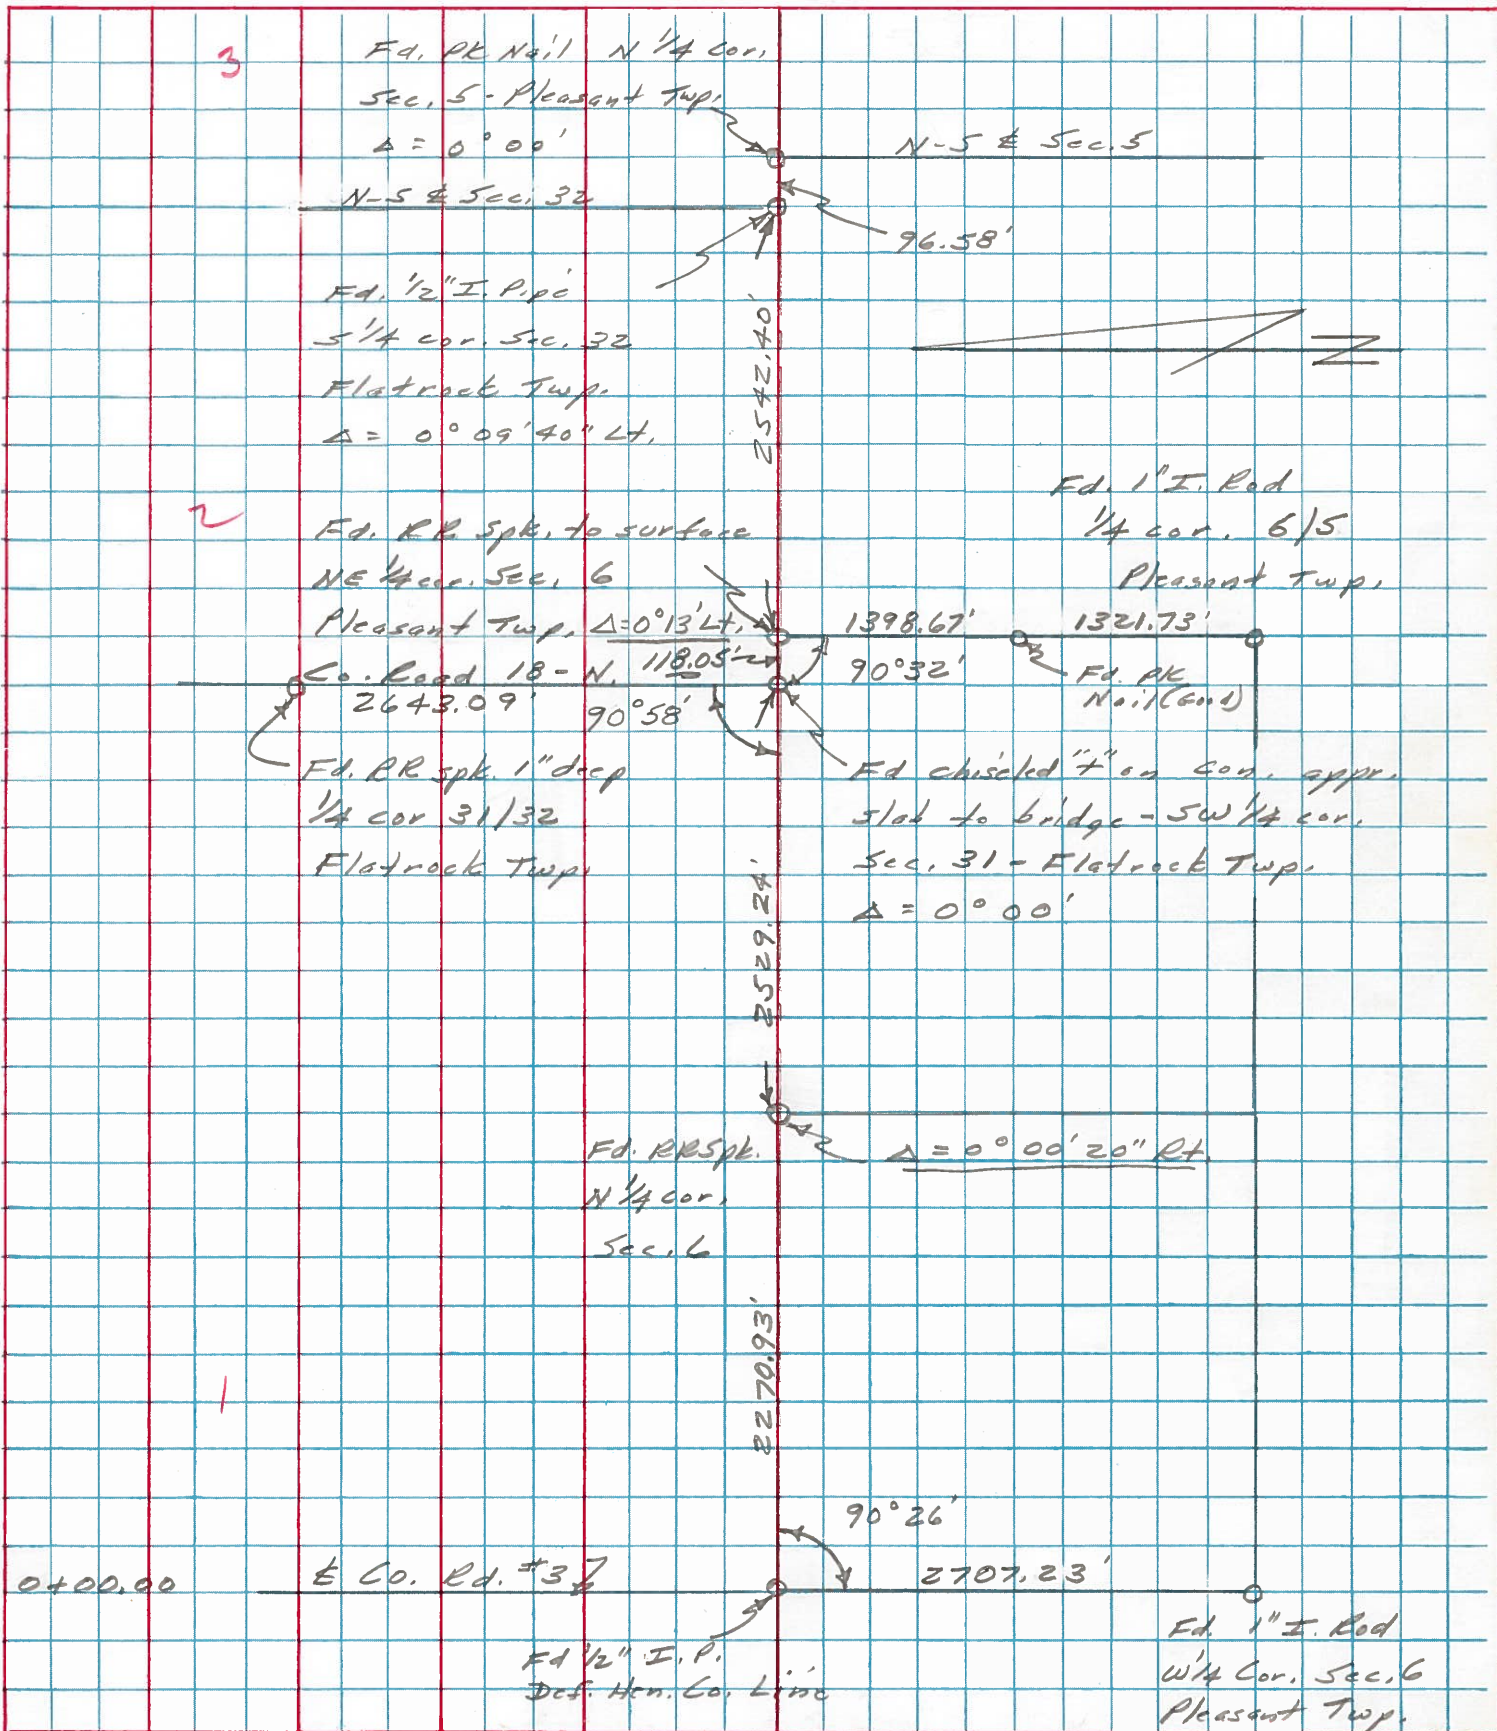 3
Fd. PK Nail N 1/4 cor.
Sec. 5 - Pleasant Twp.
Δ = 0° 00'
N-S ℄ Sec. 5
N-S ℄ Sec. 32
96.58'
Fd. 1/2" I. Pipe
S 1/4 cor. Sec. 32
Flatrock Twp.
Δ = 0° 09' 40" Lt.
2542.40'
N
2
Fd. 1" I. Rod
1/4 cor. 6/5
Pleasant Twp.
Fd. RR Spk. to surface
NE 1/4 cor. Sec. 6
Pleasant Twp. Δ=0°13' Lt.
1398.67' 1321.73'
Co. Road 18 - N. 118.05'
90°32'
Fd. PK
Nail (Good)
2643.09' 90°58'
Fd. RR spk. 1" deep
1/4 cor 31/32
Flatrock Twp.
Fd chiseled "+" on con. appr.
slab to bridge - SW 1/4 cor.
Sec. 31 - Flatrock Twp.
Δ = 0° 00'
2529.24'
Fd. RR Spk.
N 1/4 cor.
Sec. 6
Δ = 0° 00' 20" Rt.
2270.93'
1
90°26'
0+00.00 ℄ Co. Rd. 2707.23'
Fd 1/2" I. P.
Def. Hen. Co. Line
Fd. 1" I. Rod
W 1/4 Cor. Sec. 6
Pleasant Twp.